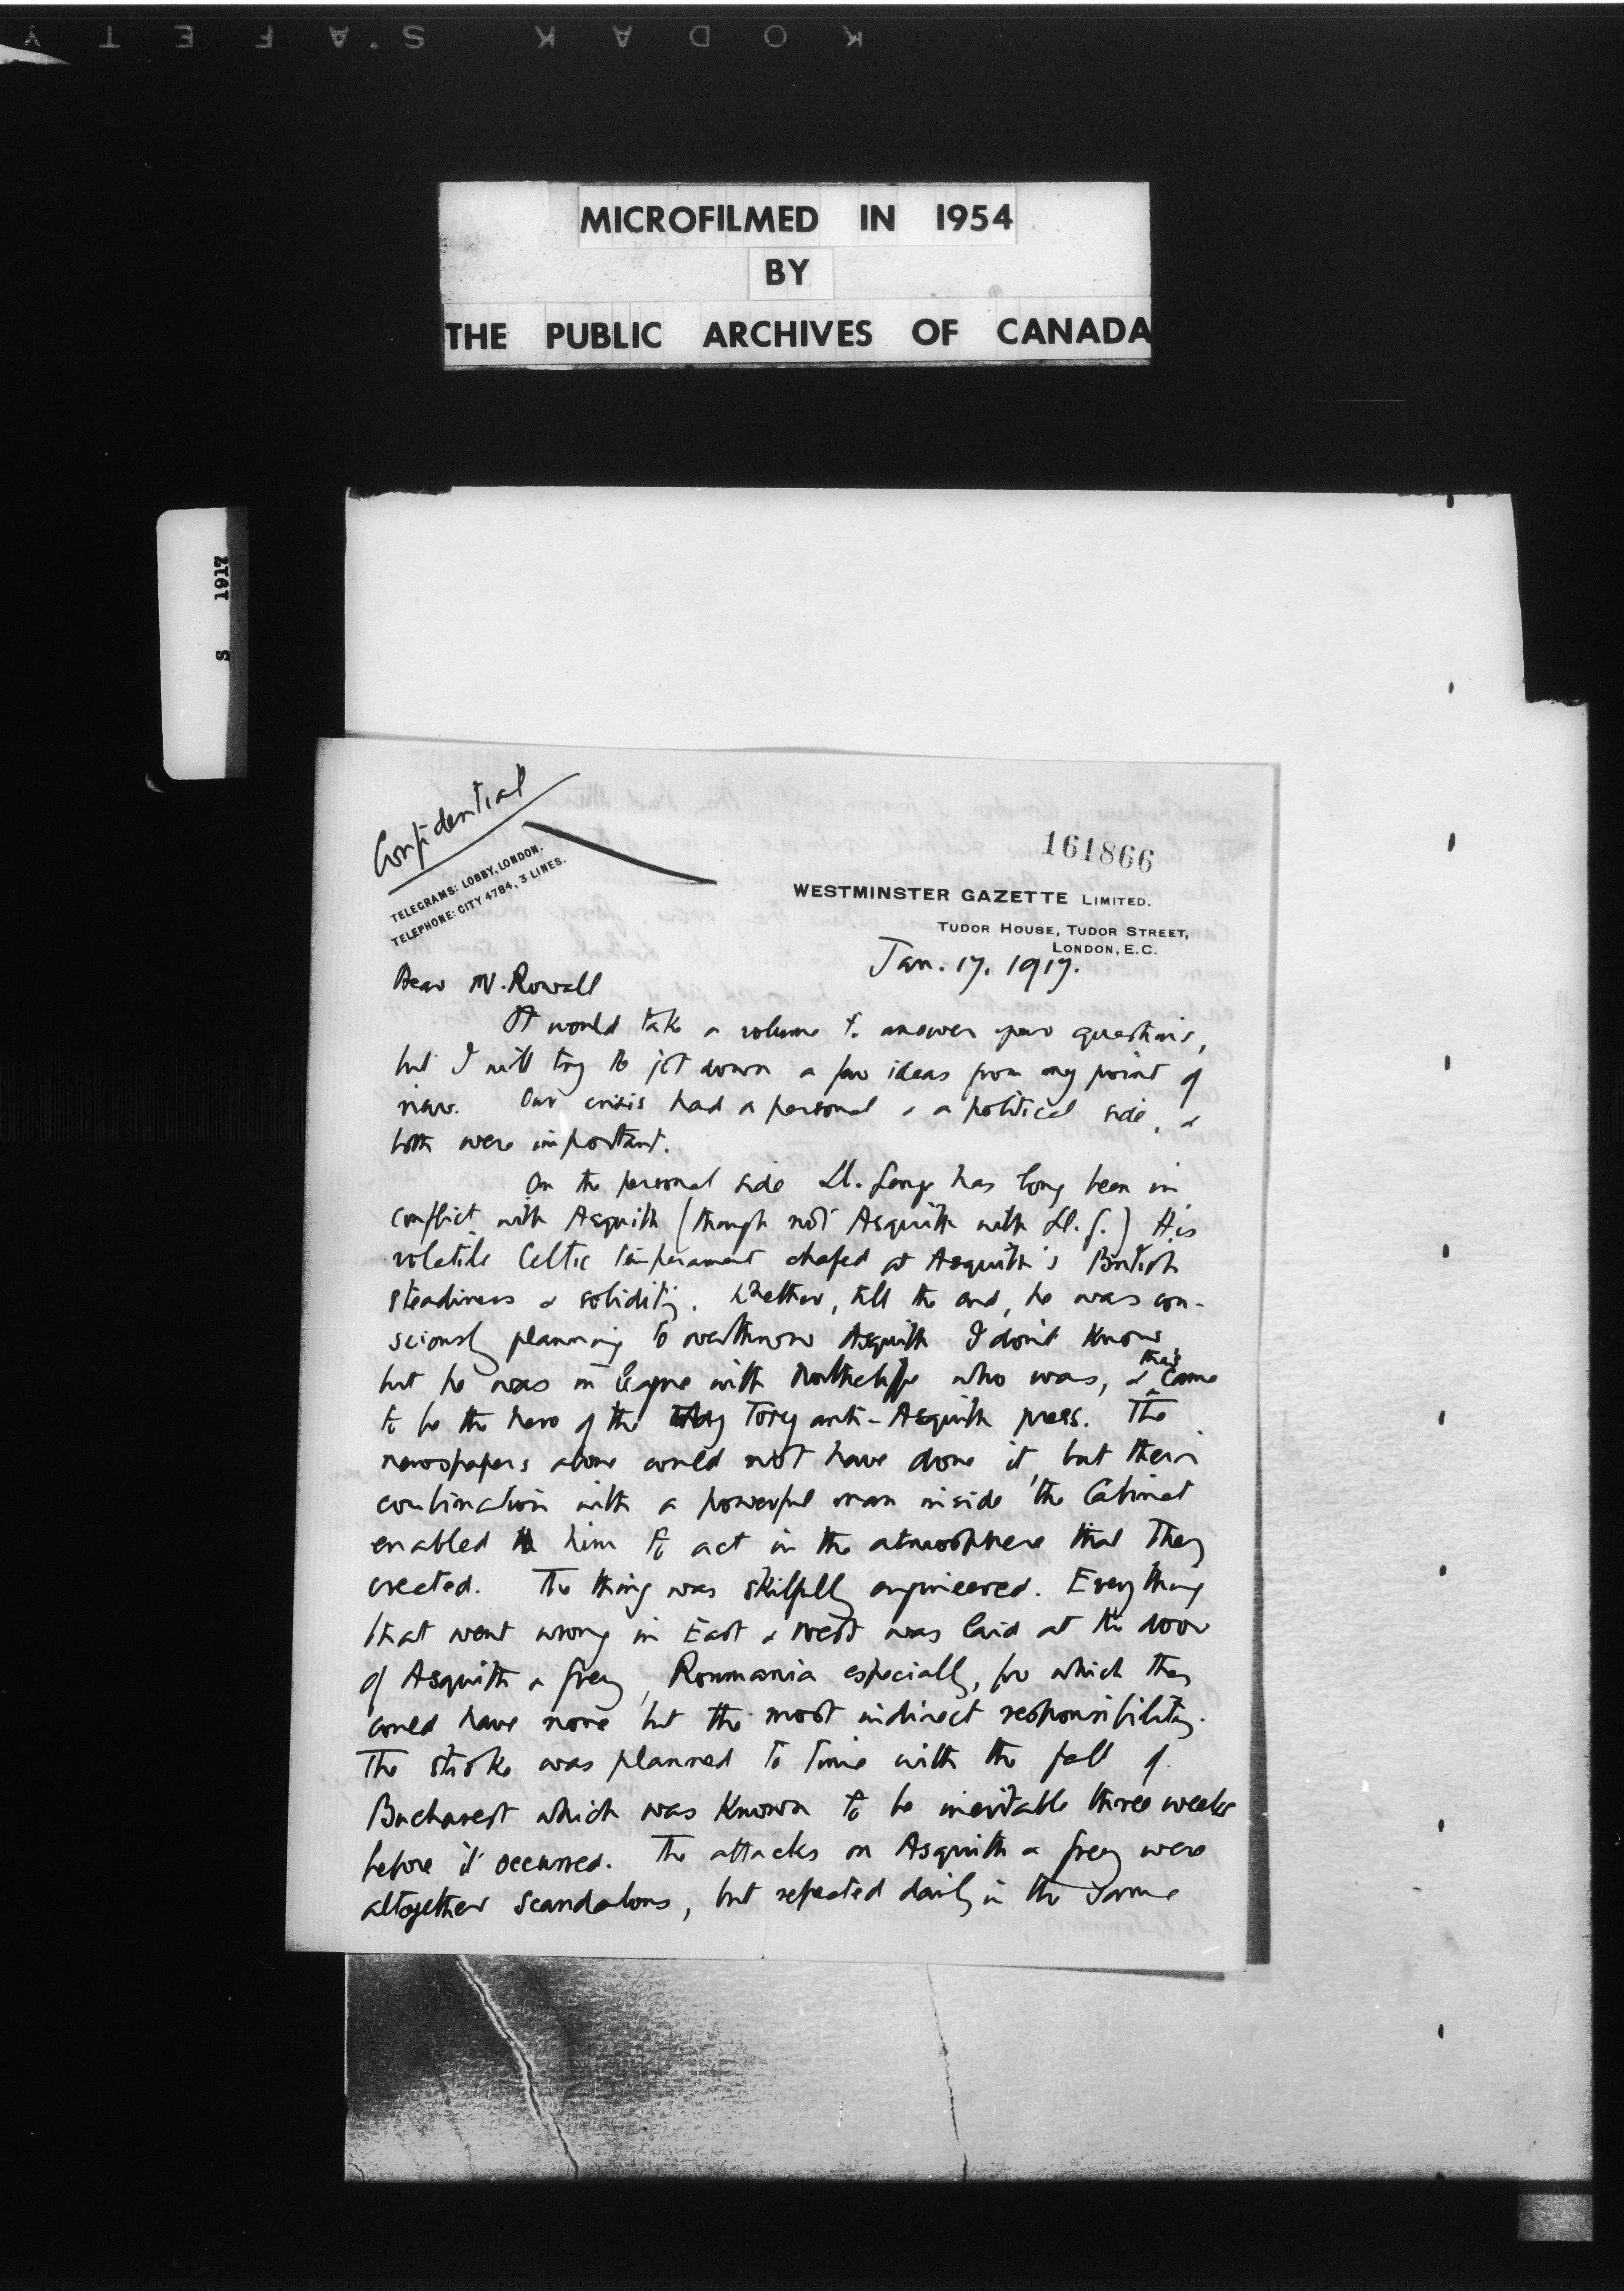 KODAK S'AFETY
MICROFILMED IN 1954
BY
THE PUBLIC ARCHIVES OF CANADA
S 1917
Confidential
TELEGRAMS: LOBBY, LONDON.
TELEPHONE: CITY 4784, 3 LINES.
161866
WESTMINSTER GAZETTE LIMITED.
TUDOR HOUSE, TUDOR STREET,
LONDON, E.C.
Jan. 17. 1917.
Dear Mr. Rowell
It would take a volume to answer your questions,
but I will try to jot down a few ideas from my point of
view. Our crisis had a personal & a political side, &
both were important.
On the personal side Ll. George has long been in
conflict with Asquith (though not Asquith with Ll. G.) His
volatile Celtic temperament chafed at Asquith's British
steadiness & solidity. Whether, till the end, he was con-
sciously planning to overthrow Asquith I don't know
but he was in league with Northcliffe who was, & thus came
to be the hero of the Tory anti-Asquith press. The
newspapers alone could not have done it, but their
combination with a powerful man inside the Cabinet
enabled him to act in the atmosphere that they
created. The thing was skilfully engineered. Everything
that went wrong in East & West was laid at the door
of Asquith & Grey, Roumania especially, for which they
could have none but the most indirect responsibility.
The stroke was planned to time with the fall of
Bucharest which was known to be inevitable three weeks
before it occurred. The attacks on Asquith & Grey were
altogether scandalous, but repeated daily in the same